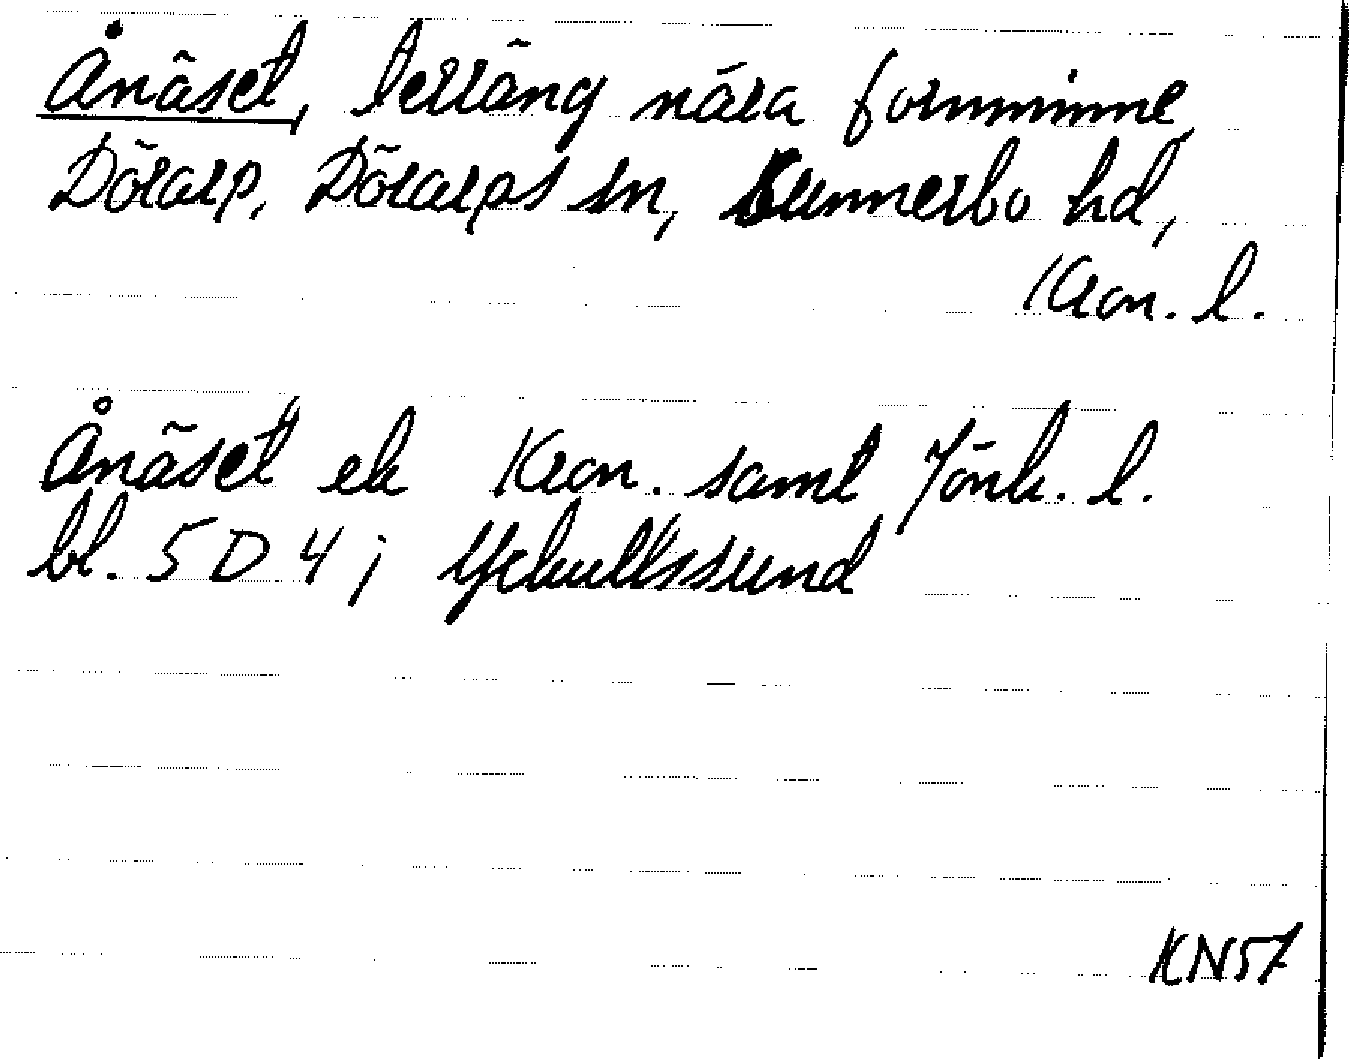 Ånäset, terräng nära fornminne,
Dörarp, Dörarps sn, Sunnerbo hd,
Kron. l.
Ånäset ek Kron. samt Jönk. l.
bl. 5 D 4; Yckullssund
KN57